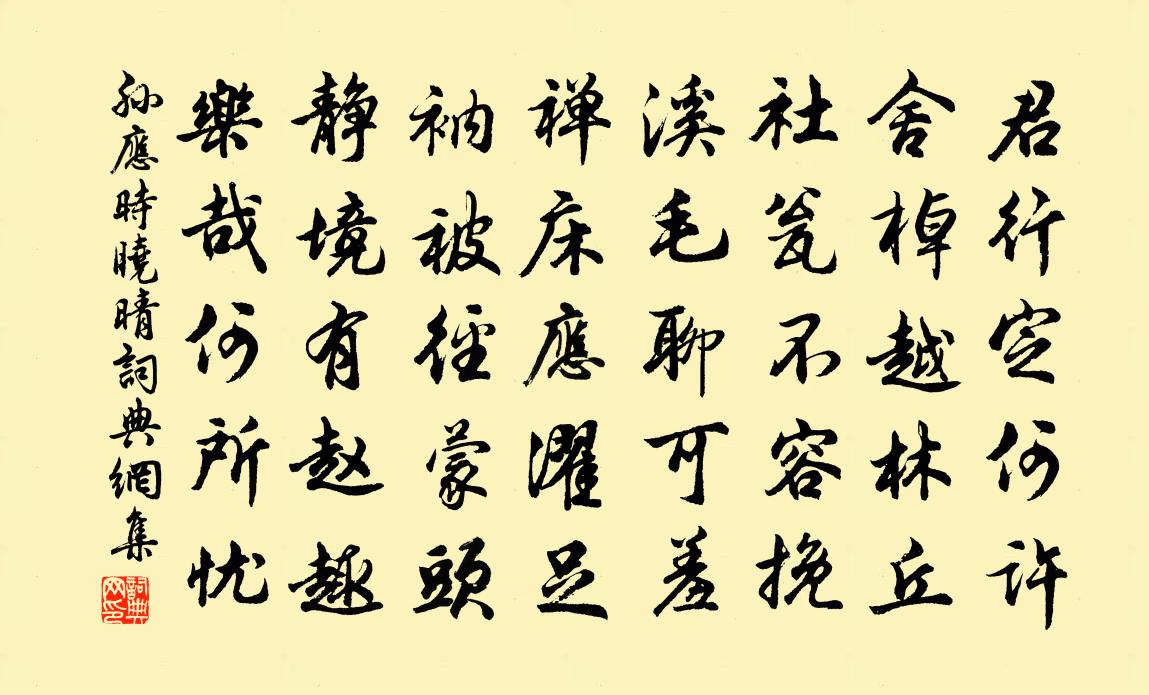 君行定何许
舍棹越林丘
社瓮不容挽
溪毛聊可羞
禅床應濯足
衲被径蒙頭
静境有赵趣
樂哉何所忧
孙應時曉晴詞典網集
詞典網印